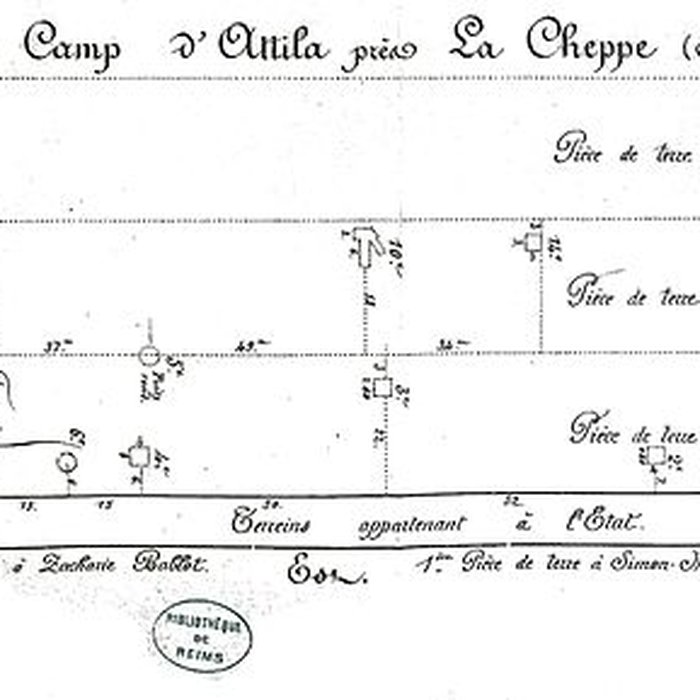 Camp d'Attila près La Cheppe (
Pièce de terre.
10.e
Pièce de terre
37.m
49.m
34.m
18
5.e
Puits
3.e
Pièce de terre
22.
4.e
2.e
15.
15
50.
52.
Terreins appartenant à l'Etat.
à Zacharie Bablot.
Est.
1.ère Pièce de terre à Simon-
BIBLIOTHÈQUE
DE
REIMS